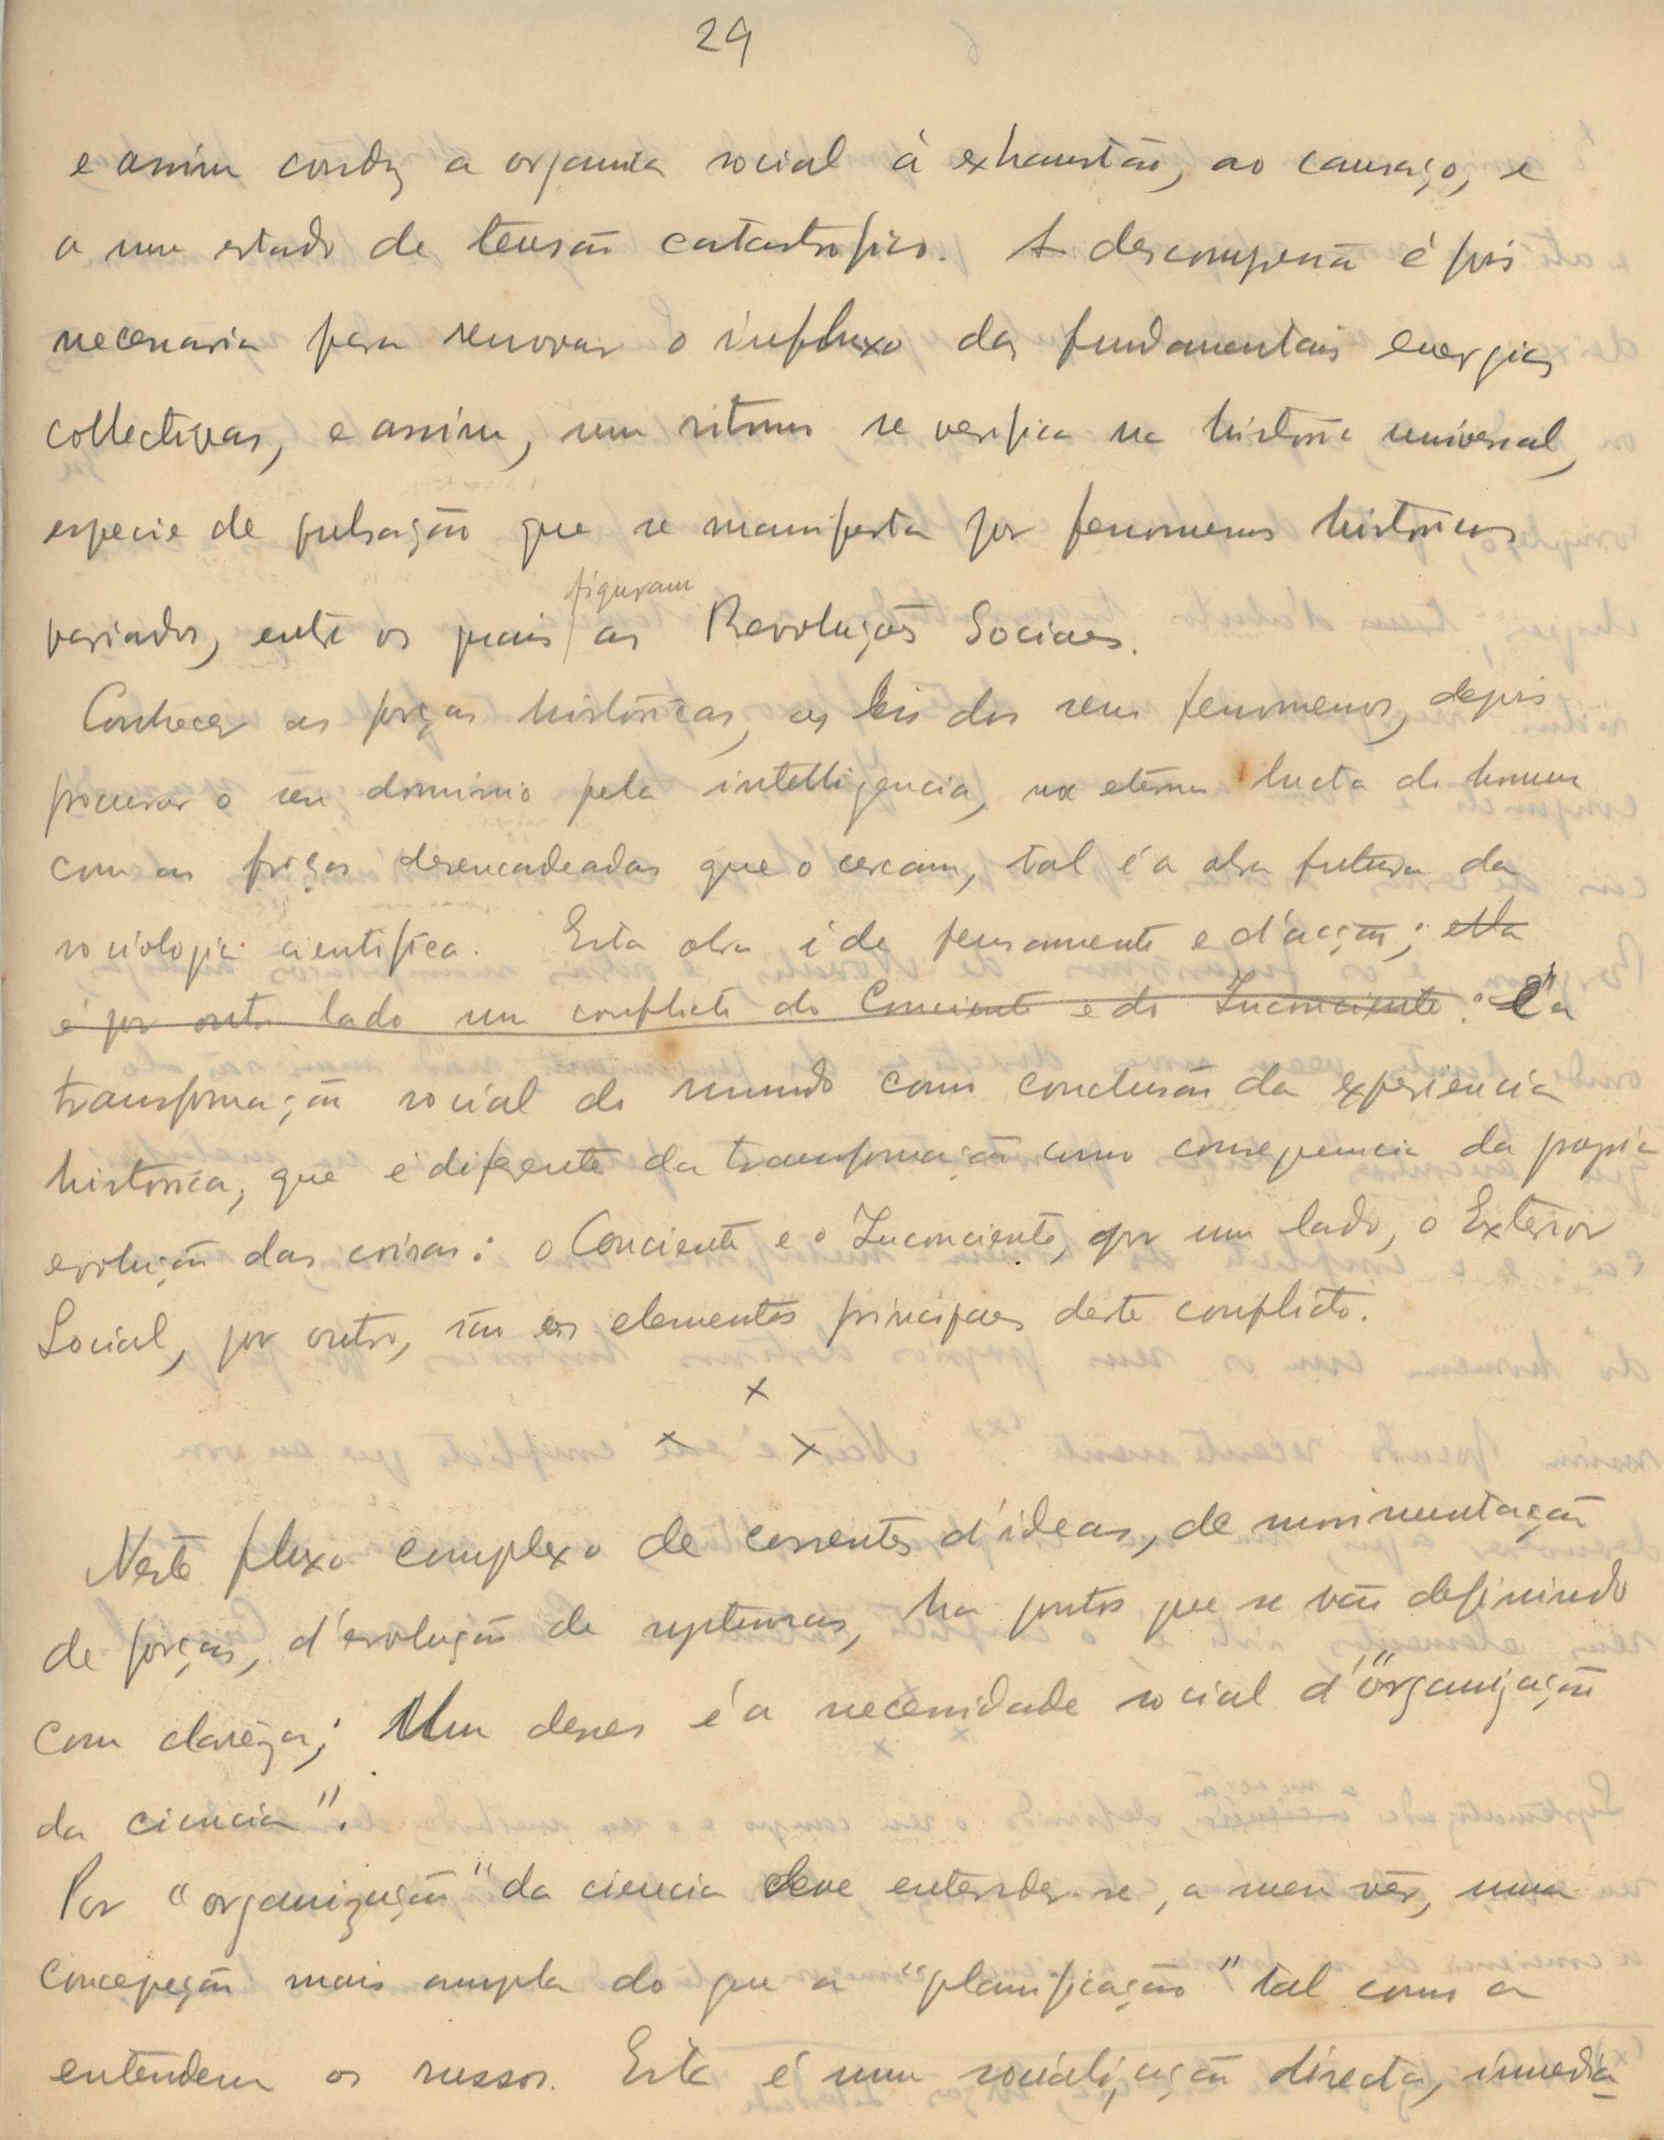 29
e assim conduz a organica social á exhaustão, ao cansaço, e
a um estado de tensão catastrofico. A descompensã é pois
necessaria para renovar o influxo das fundamentais energias
collectivas, e assim, um ritmo se verifica na historia universal,
especie de pulsação que se manifesta por fenomenos historicos
figuram
variados, entre os quais as Revoluções Sociaes.
Conhecer as forças históricas, as leis dos seus fenomenos, depois
procurar o seu dominio pela intelligencia, na eterna lucta do homem
com as forças desencadeadas que o cercam, tal é a obra futura da
sociologia cientifica. Esta obra é de pensamento e d'acção; ella
é por outro lado um conflicto do Conciente e do Inconciente: "É a
transformação social do mundo como conclusão da experiencia
historica, que é diferente da transformação como consequencia da propria
evolução das coisas: o Conciente e o Inconciente, por um lado, o Exterior
Social, por outro, são os elementos principaes deste conflicto.
x
x x
Neste fluxo complexo de correntes d'ideas, de movimentação
de forças, d'evolução de systemas, ha pontos que se vão definindo
com clareza; Um desses é a necessidade social d'"organização
da ciencia".
Por "organização" da ciencia deve entender-se, a meu vêr, uma
concepção mais ampla do que a "planificação" tal como a
entendem os russos. Esta é uma socialização directa, immedia-